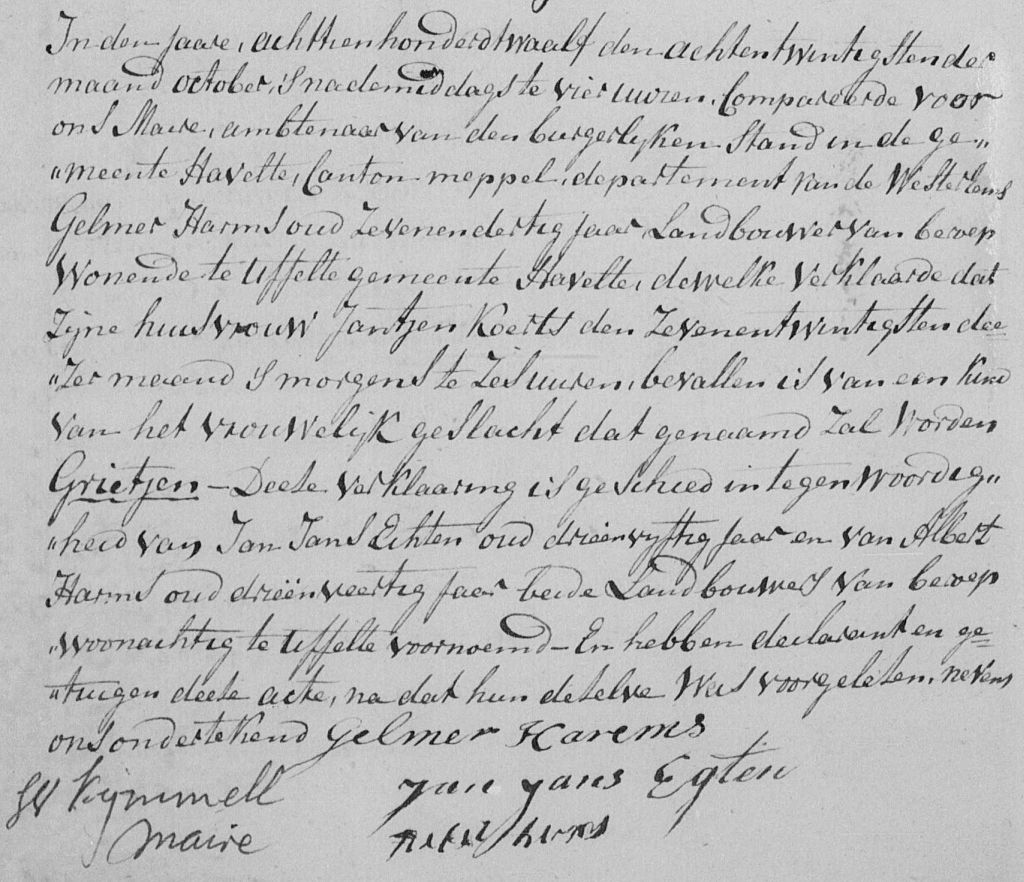 In den jaare, achttienhonderd twaalf den achtentwintigsten der
maand october, 'snademiddags te vier uuren, Compareerde voor
ons Maire, ambtenaar van den burgerlyken Stand in de ge„
„meente Havelte, Canton meppel, departement van de Wester Eems
Gelmer Harms oud Zevenendertig jaar, Landbouwer van beroep
Wonende te Uffelte gemeente Havelte, dewelke Verklaarde dat
Zijne huisvrouw Jantjen Koerts den Zevenentwintigsten dee=
„Zer maand 'smorgens te Zes uuren, bevallen is van een kind
van het vrouwelijk geslacht dat genaamd Zal Worden
Grietjen – Deese verklaaring is geschied in tegenwoordig„
„heid van Jan Jans Echten oud drieënvyftig Jaar en van Albert
Harms oud drieënveertig Jaar beide Landbouwers van beroep
„woonachtig te Uffelte voornoemd – En hebben declarant en ge=
„tuigen deese acte, na dat hun deselve Was voorgelesen, nevens
ons ondertekend Gelmer Harems
Kymmell Jan Jans Egten
Maire harms